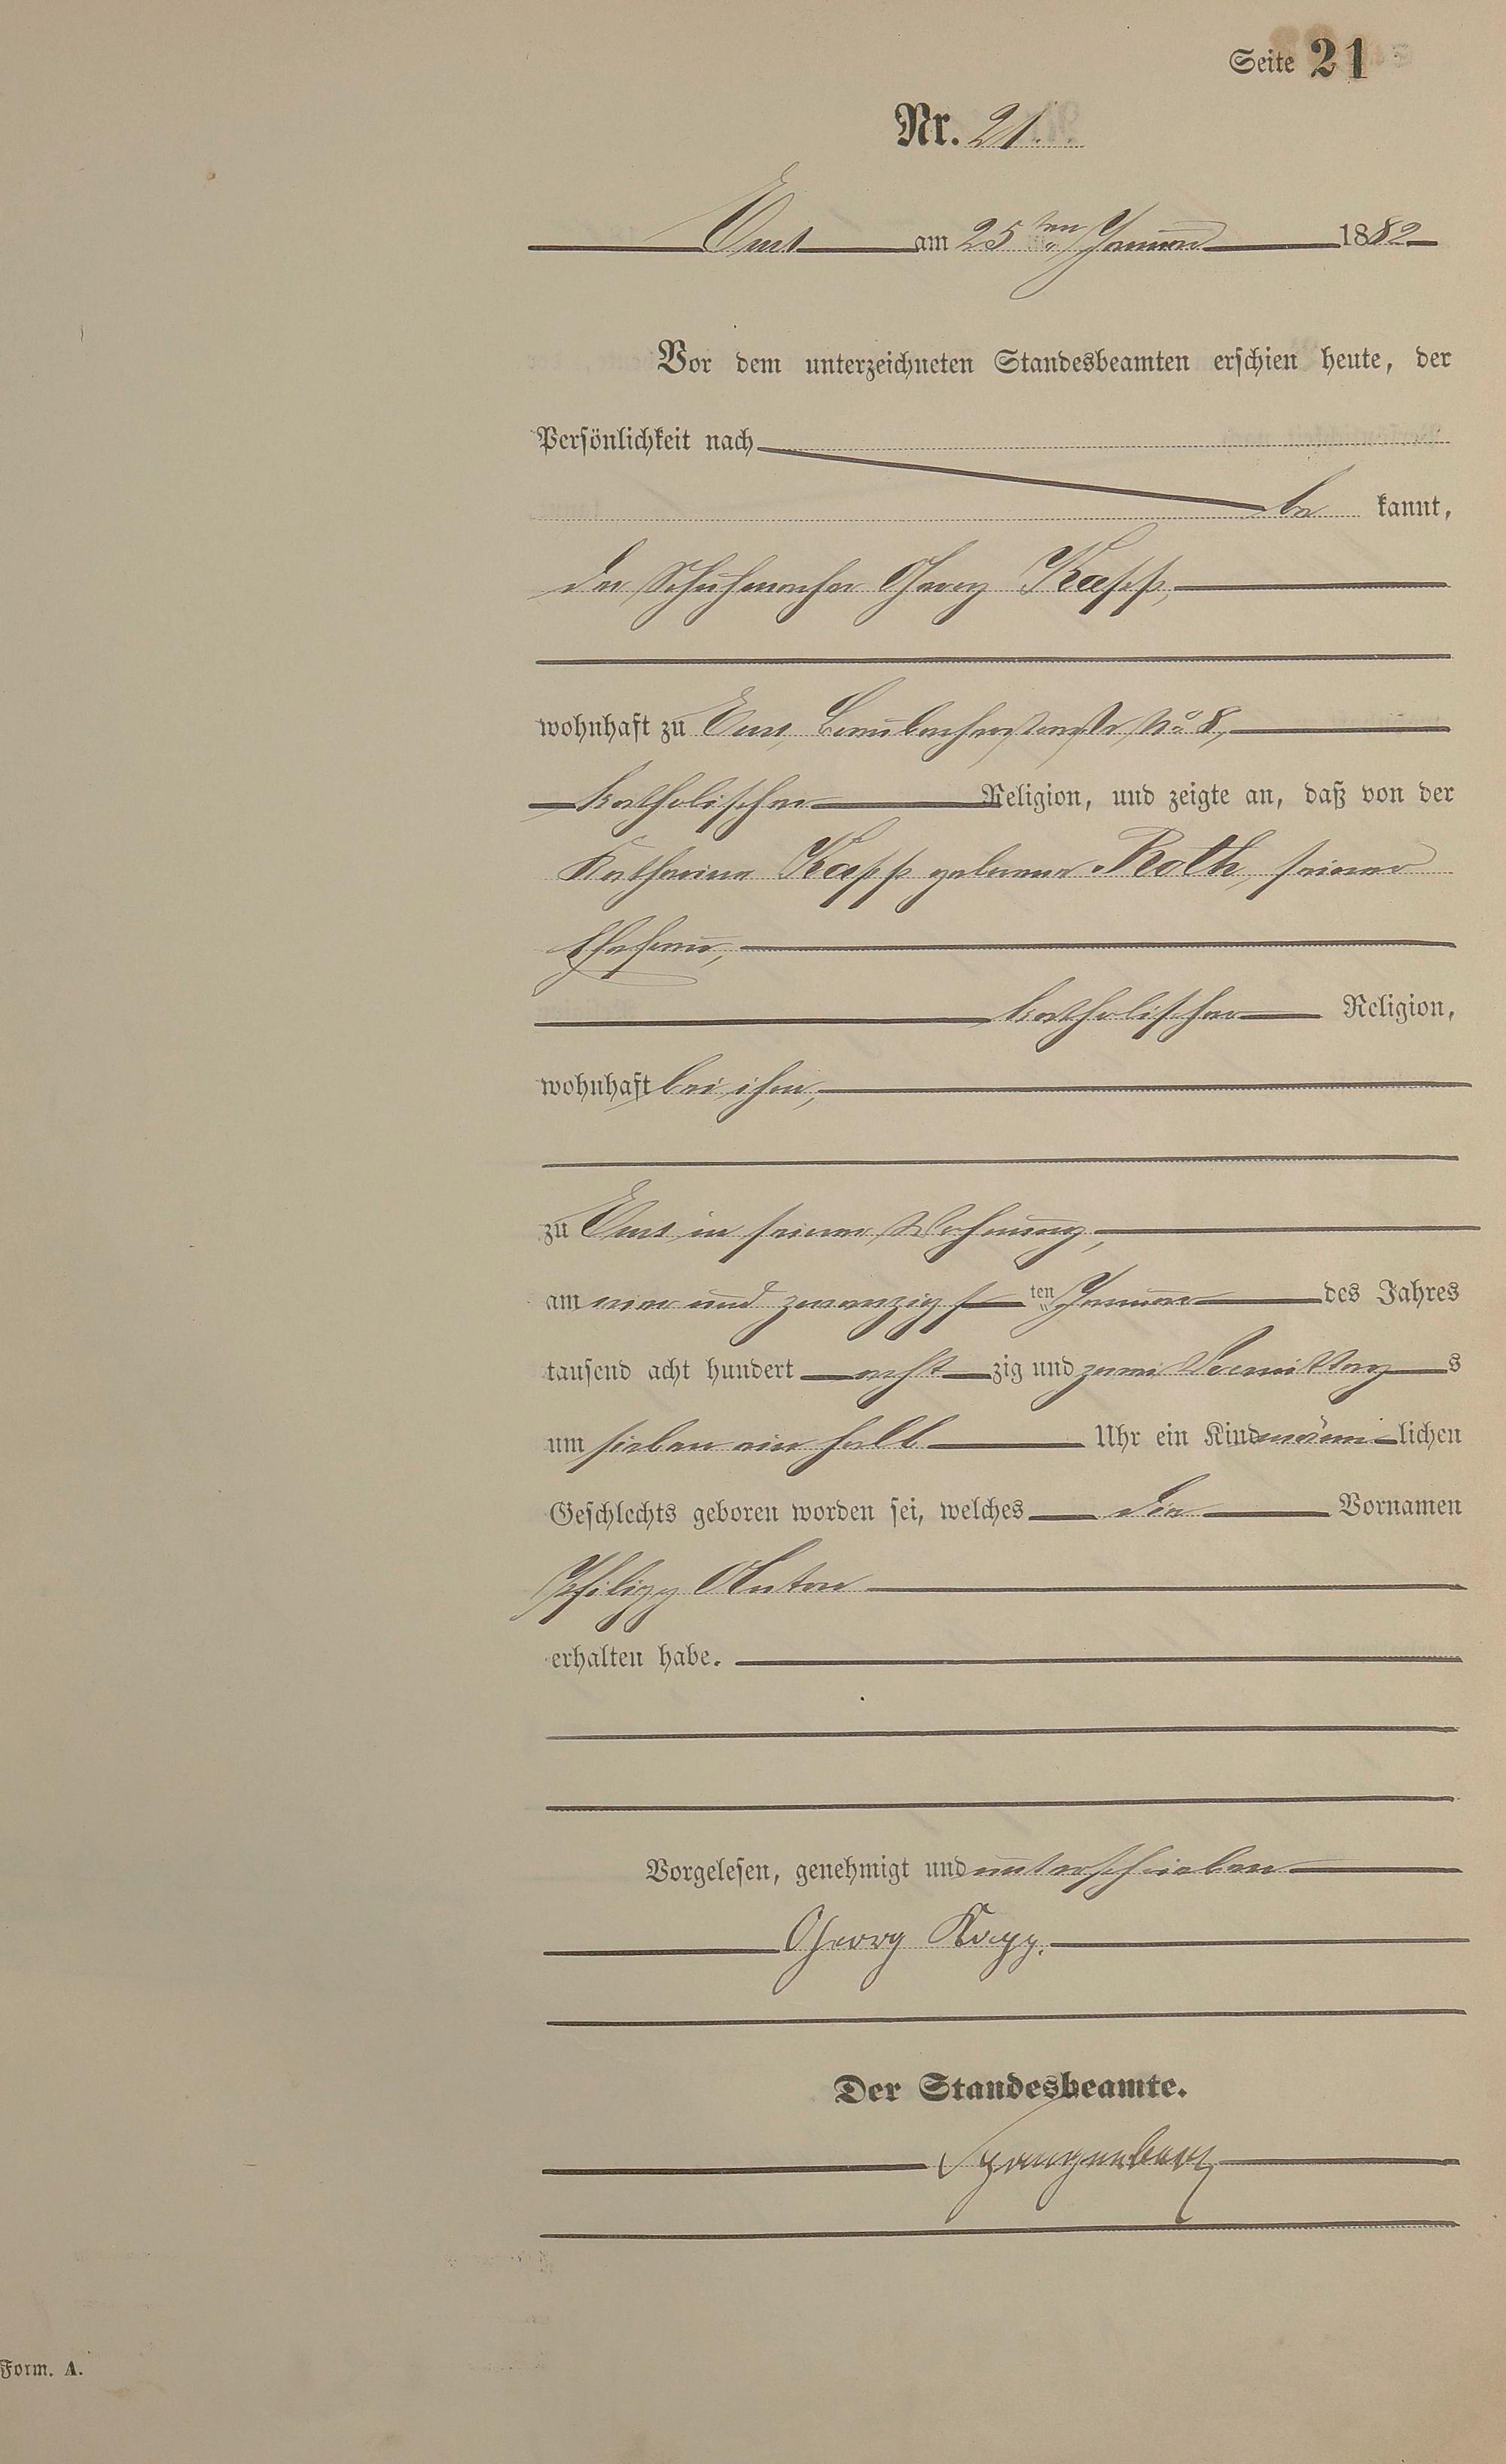 Seite 21
Nr. 21.
Ems am 25ten Januar 1882
Vor dem unterzeichneten Standesbeamten erschien heute, der
Persönlichkeit nach
be kannt,
der Schuhmacher Georg Kapp,
wohnhaft zu Ems, Braubacherstraße No 8,
katholischer Religion, und zeigte an, daß von der
Katharina Kapp geborene Roth, seiner
Ehefrau,
katholischer Religion,
wohnhaft bei ihm,
zu Ems in seiner Wohnung,
am ein und zwanzigsten Januar des Jahres
tausend acht hundert acht zig und zwei Vormittag s
um sieben ein halb Uhr ein Kind männ lichen
Geschlechts geboren worden sei, welches die Vornamen
Philipp Anton
erhalten habe.
Vorgelesen, genehmigt und unterschrieben
Georg Kapp.
Der Standesbeamte.
Spangenberg
Form. A.